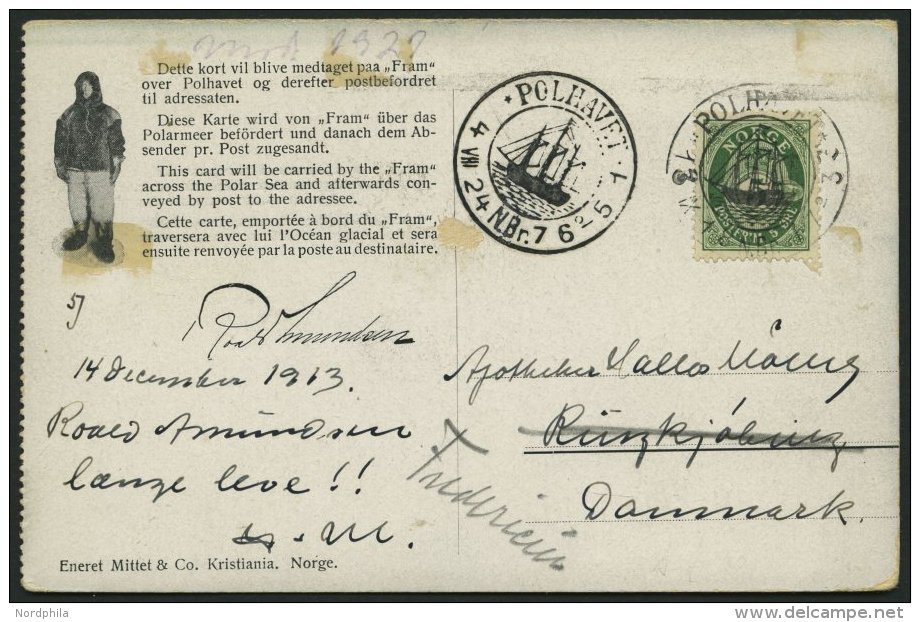 mod 1921
Dette kort vil blive medtaget paa „Fram"
over Polhavet og derefter postbefordret
til adressaten.
Diese Karte wird von „Fram" über das
Polarmeer befördert und danach dem Ab-
sender pr. Post zugesandt.
This card will be carried by the „Fram"
across the Polar Sea and afterwards con-
veyed by post to the adressee.
Cette carte, emportée à bord du „Fram",
traversera avec lui l'Océan glacial et sera
ensuite renvoyée par la poste au destinataire.
POLHAVET
4 VIII 24 N.Br. 76 2 5 1
POLHAVET
NORGE
5)
Roald Amundsen
14 December 1913.
Roald Amundsen
længe leve!!
Apotheker
Danmark.
Fredericia
Eneret Mittet & Co. Kristiania. Norge.
Nordphila
delcampe.net